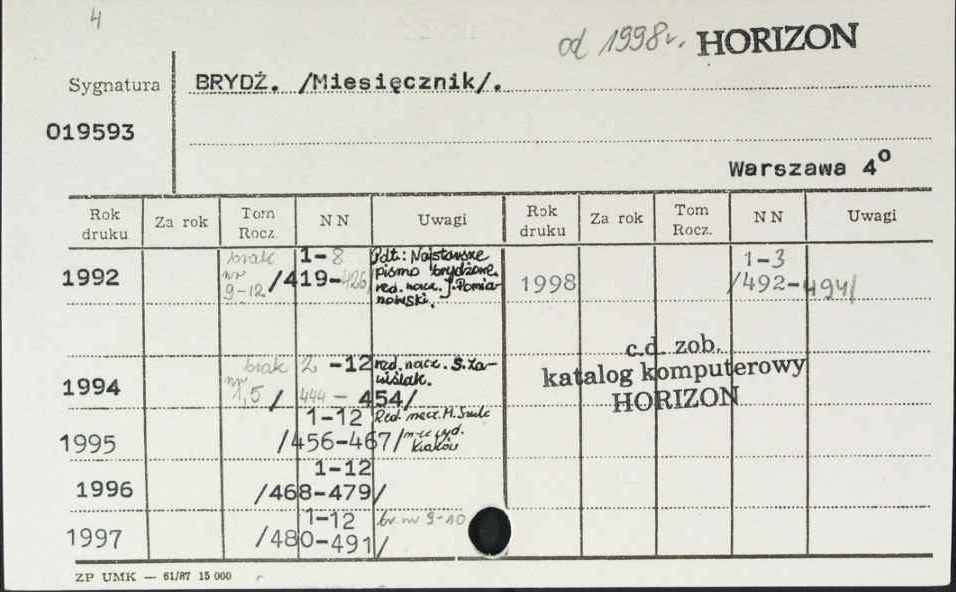 4
od 1998r. HORIZON
Sygnatura BRYDŻ. /Miesięcznik/.
019593
Warszawa 4º
Rok druku Za rok Tom Rocz. NN Uwagi Rok druku Za rok Tom Rocz. NN Uwagi
1992 brak nr 9-12 1-8 /419-426/ Pdt.: Najstarsze pismo brydżowe. red. nacz. J. Pomianowski.
1998 1-3 /492-494/
1994 brak nr 1,5 2-12 /444-454/ red. nacz. S. Zawiślak.
c.d. zob.
katalog komputerowy
HORIZON
1995 1-12 /456-467/ Red. nacz. M. wyd. Kraków
1996 1-12 /468-479/
1997 1-12 /480-491/ br. nr 9-10
ZP UMK — 61/87 15 000